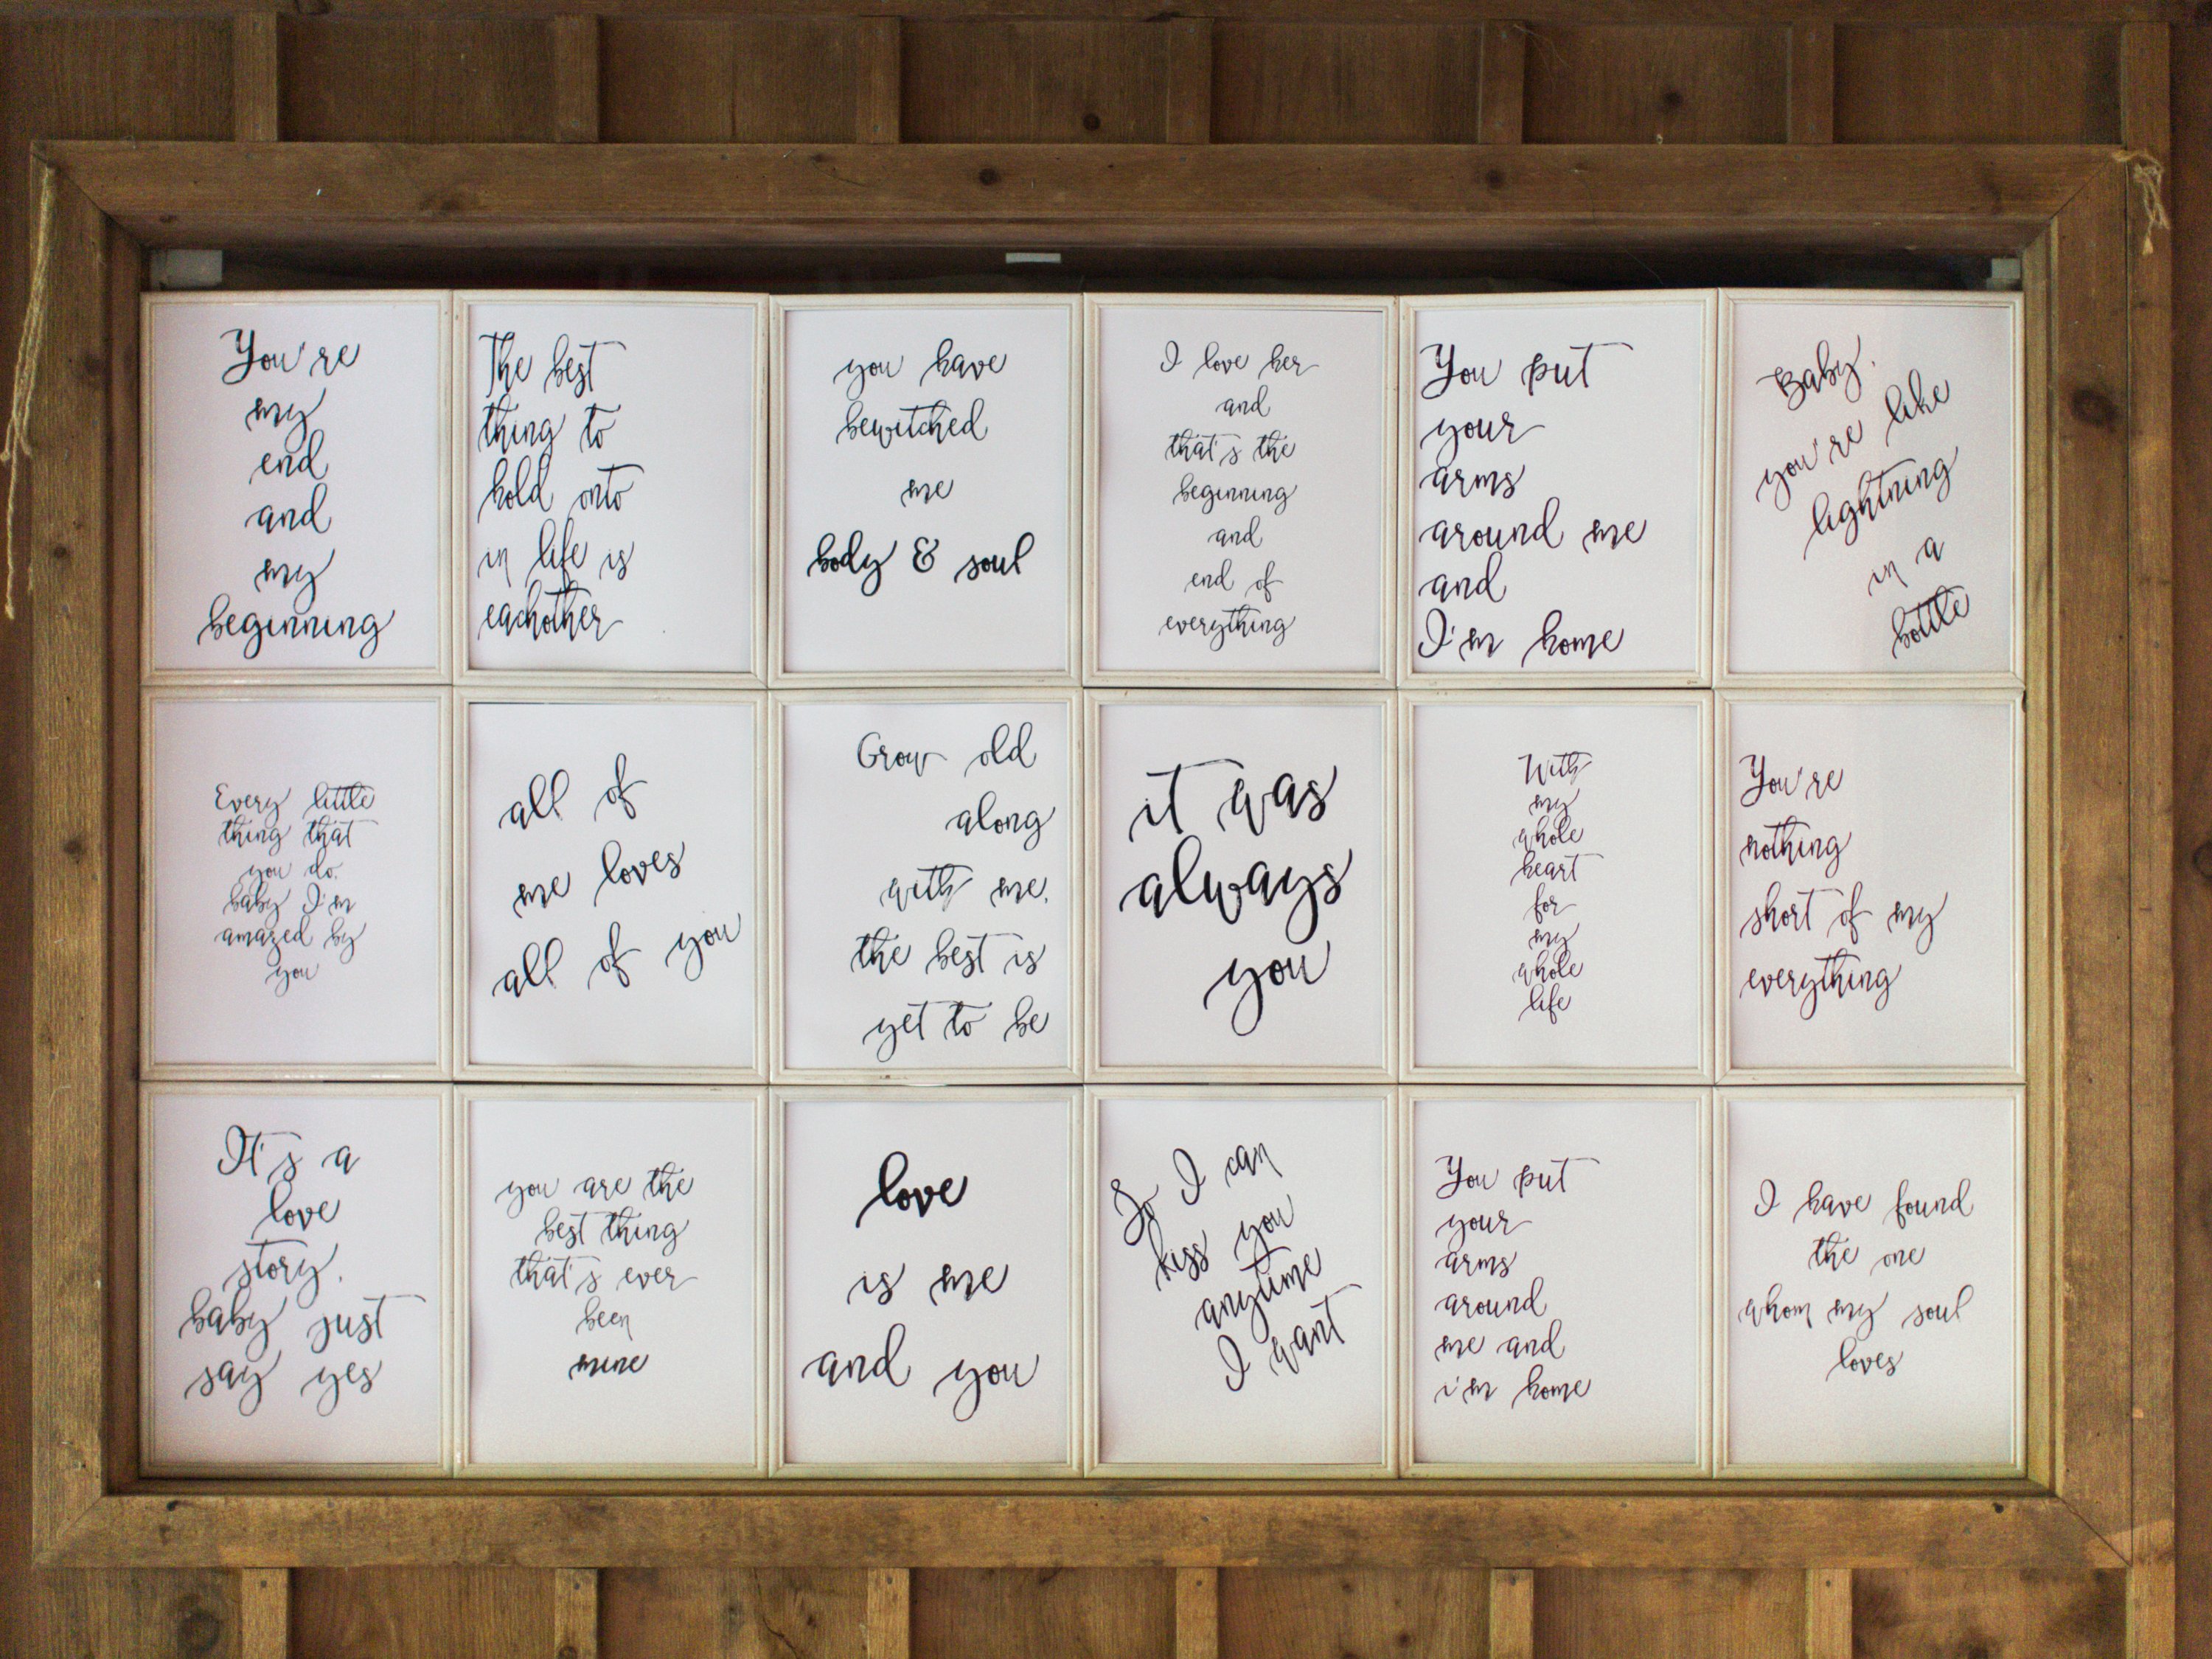 You're
my
end
and
my
beginning
The best
thing to
hold onto
in life is
eachother
you have
bewitched
me
body & soul
I love her
and
that's the
beginning
and
end of
everything
You put
your
arms
around me
and
I'm home
Baby,
you're like
lightning
in a
bottle
Every little
thing that
you do,
baby I'm
amazed by
you
all of
me loves
all of you
Grow old
along
with me,
the best is
yet to be
it was
always
you
With
my
whole
heart
for
my
whole
life
You're
nothing
short of my
everything
It's a
love
story,
baby just
say yes
you are the
best thing
that's ever
been
mine
love
is me
and you
So I can
kiss you
anytime
I want
You put
your
arms
around
me and
i'm home
I have found
the one
whom my soul
loves